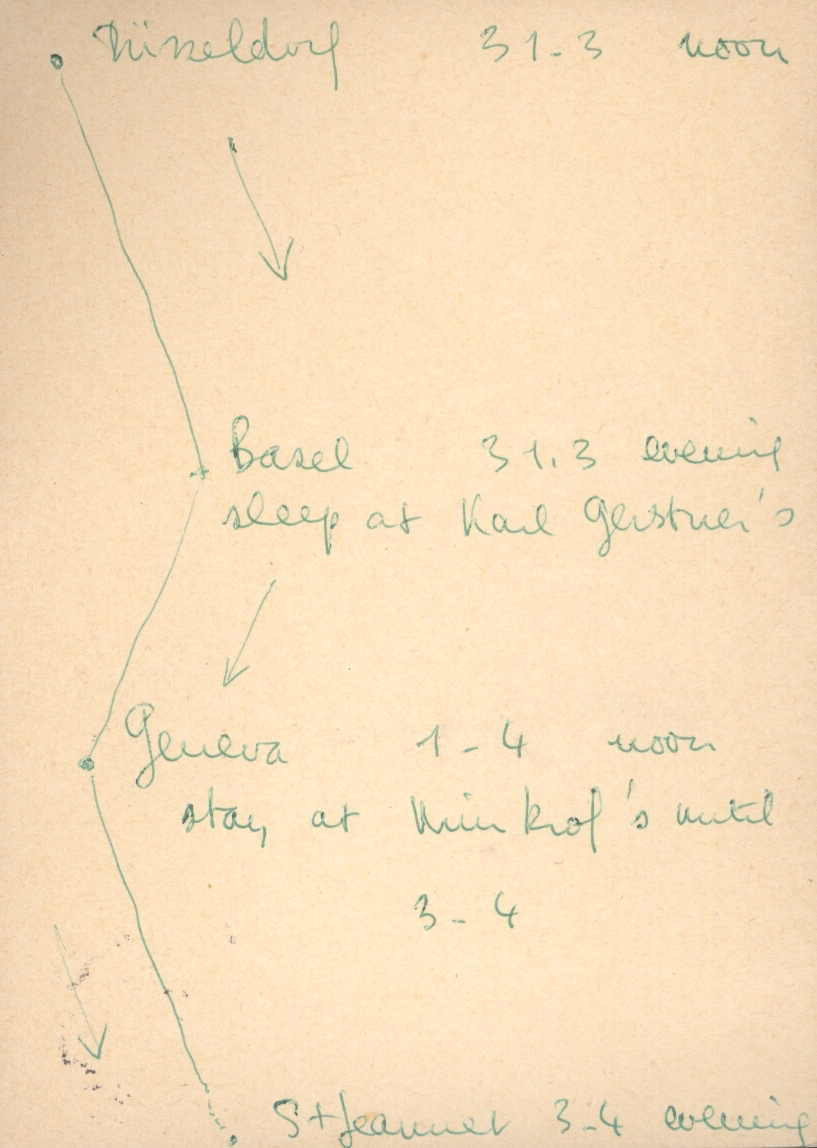 Düsseldorf 31-3 noon
Basel 31.3 evening
sleep at Karl Gerstner's
Geneva 1-4 noon
stay at 's until
3-4
St Jeannet 3-4 evening